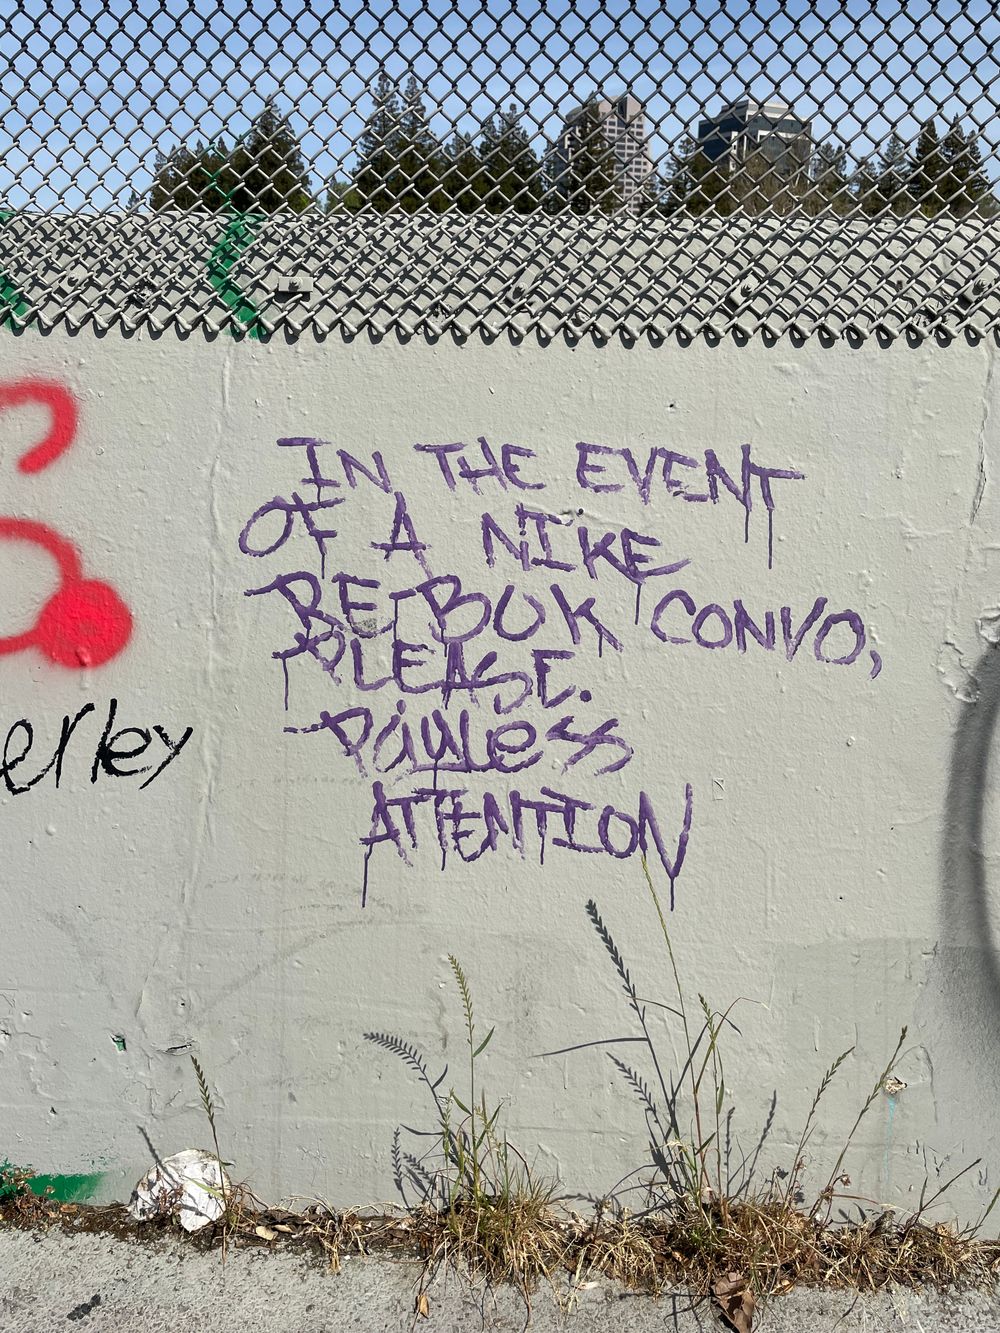 IN THE EVENT
OF A NIKE
RE-BUK CONVO,
PLEASE.
PAYLess
ATTENTION
erley